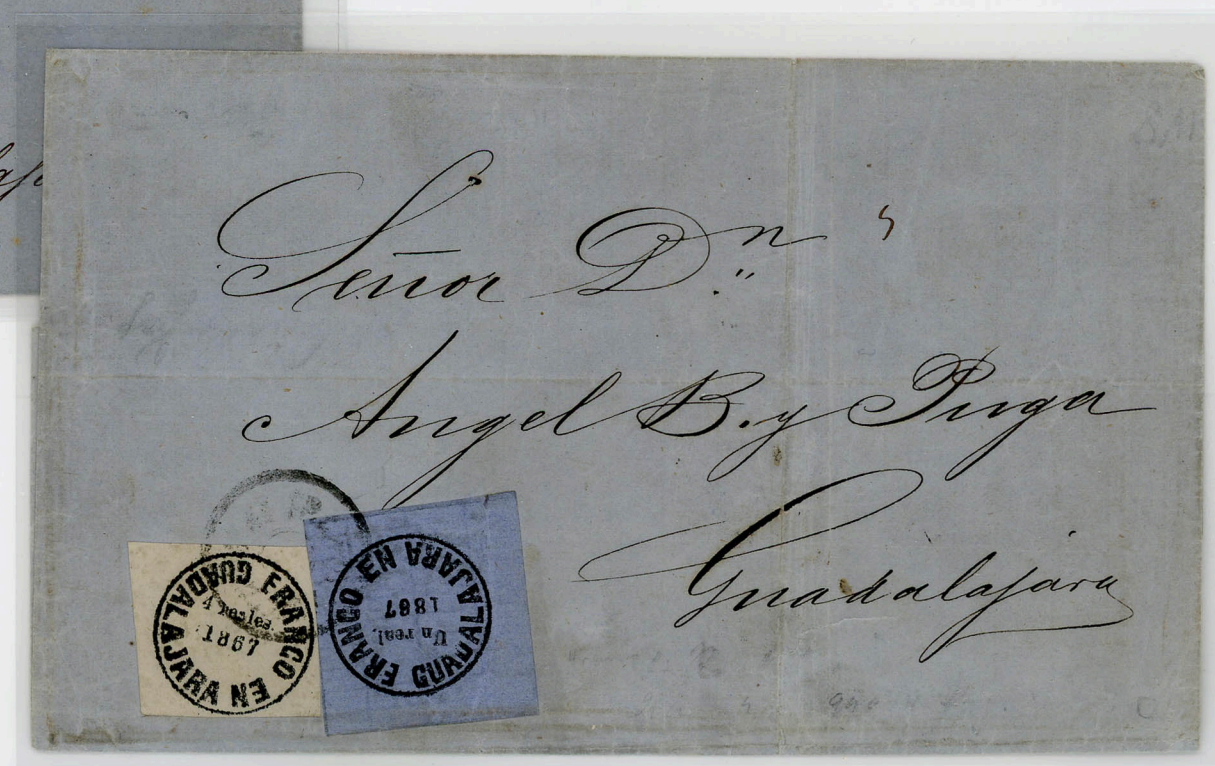 Señor Dⁿ
Angel B. y Puga
Guadalajara
FRANCO EN GUADALAJARA
reales
1867
FRANCO EN GUADALAJARA
Un real
1867